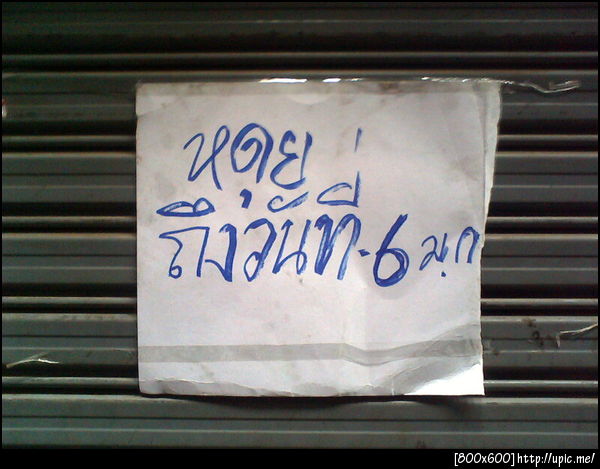 หดุย
ถึงวันที่.6 ม.ก
[800x600]http://upic.me/